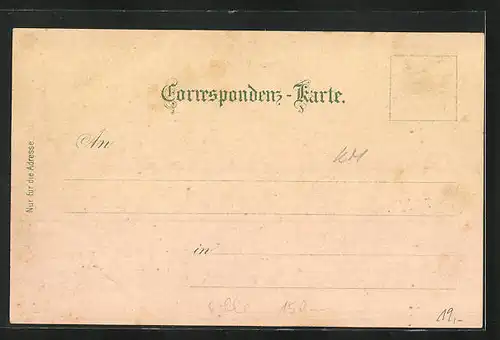 Correspondenz-Karte.
An
Nur für die Adresse.
in
150.-
19,-